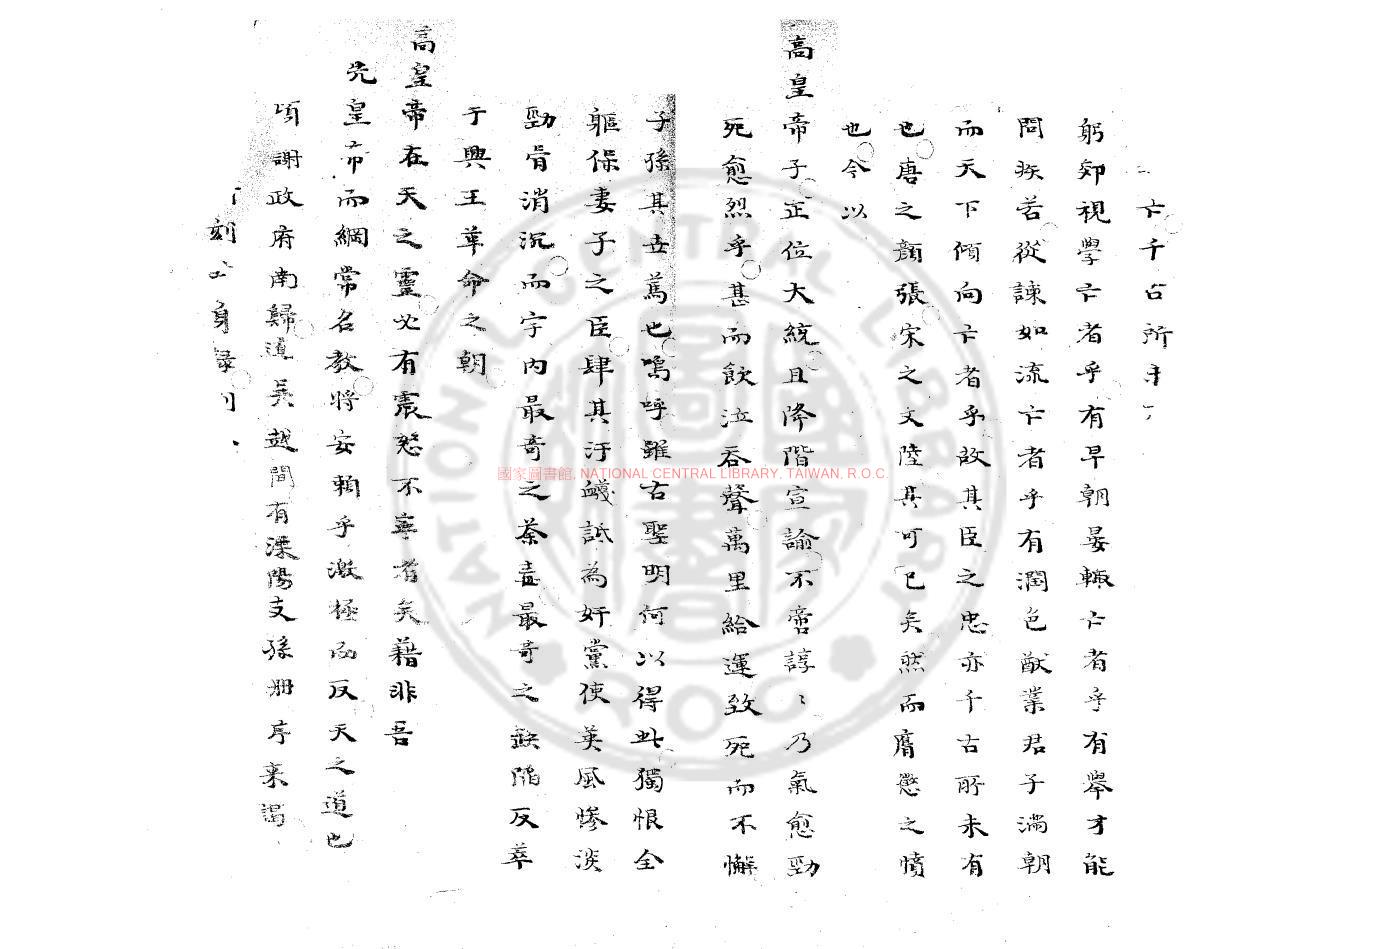 亡千古所未
躬郊視學亡者乎有早朝晏輙亡者乎有舉才能
問疾苦從諫如流亡者乎有潤色猷業君子滿朝
而天下傾向亡者乎故其臣之忠亦千古所未有
也唐之顏張宋之文陸其可已矣然而膺懲之憤
也今以
高皇帝子正位大統且降階宣諭不啻諄〻乃氣愈勁
死愈烈乎甚而飲泣吞聲萬里給運致死而不懈
子孫其世篤也嗚呼雖古聖明何以得此獨恨全
軀保妻子之臣肆其汙衊詆為奸黨使英風慘淡
勁骨消沉而宇內最奇之荼毒最奇之缺陷反萃
于興王革命之朝
高皇帝在天之靈必有震怒不寧者矣藉非吾
先皇帝而綱常名教將安賴乎激極而反天之道也
頃謝政府南歸道吳越間有溧陽支孫冊序來謁
刻 身錄
國家圖書館, NATIONAL CENTRAL LIBRARY, TAIWAN, R.O.C.
NATIONAL CENTRAL LIBRARY
R.O.C